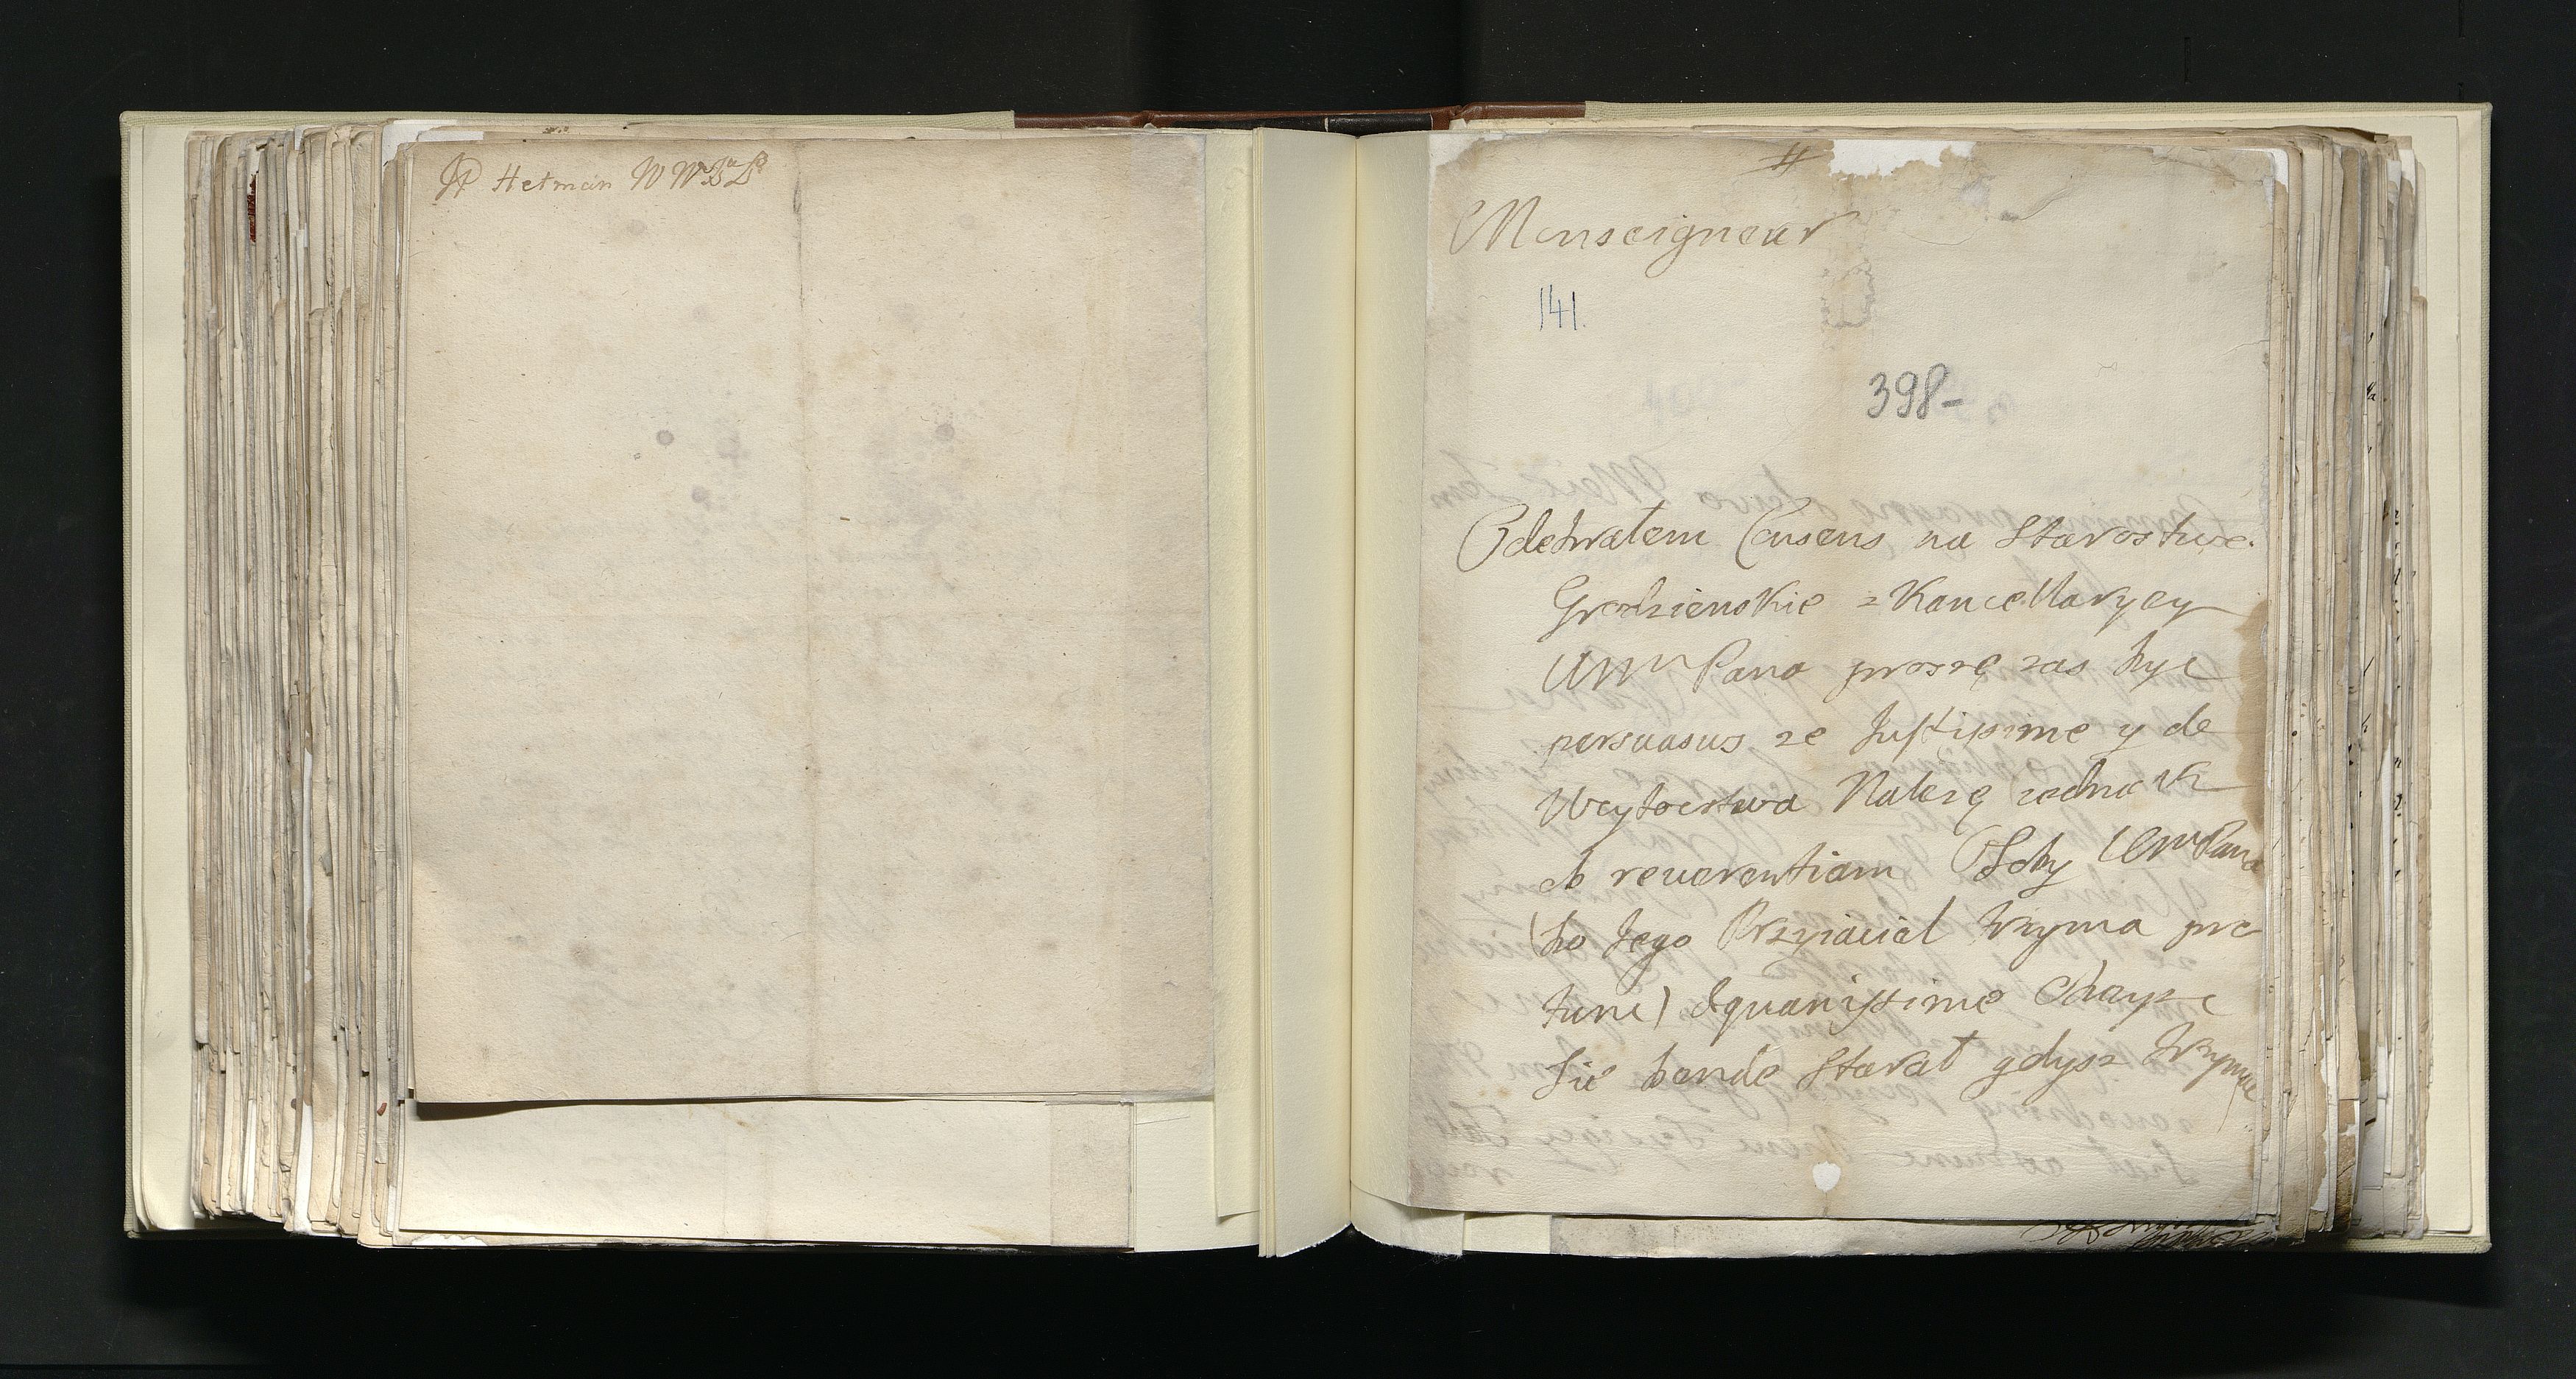 JP Hetman W W X L
#
Monseigneur
141.
398-
Odebrałem Consens na Starostwo
Grodzienskie z Kancellaryey
WM Pana proszę zas byc
persuasus ze Justissime y de
Nalezę iednak
ob reverentiam Osoby WM Pana
(bo Jego Przyiaciel trzyma pro
tunc) Equanissime
Sie bende Starał gdysz trzyma